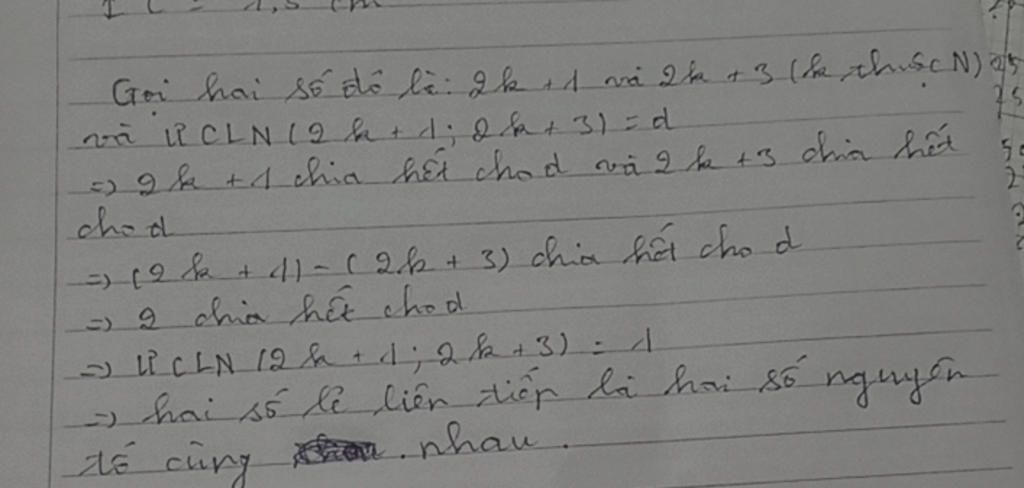 Gọi hai số đó là: 2k + 1 và 2k + 3 (k thuộc N)
và ƯCLN (2k + 1; 2k + 3) = d
=> 2k + 1 chia hết cho d và 2k + 3 chia hết
cho d
=> (2k + 1) - (2k + 3) chia hết cho d
=> 2 chia hết cho d
=> ƯCLN (2k + 1; 2k + 3) = 1
=> hai số lẻ liên tiếp là hai số nguyên
tố cùng nhau.